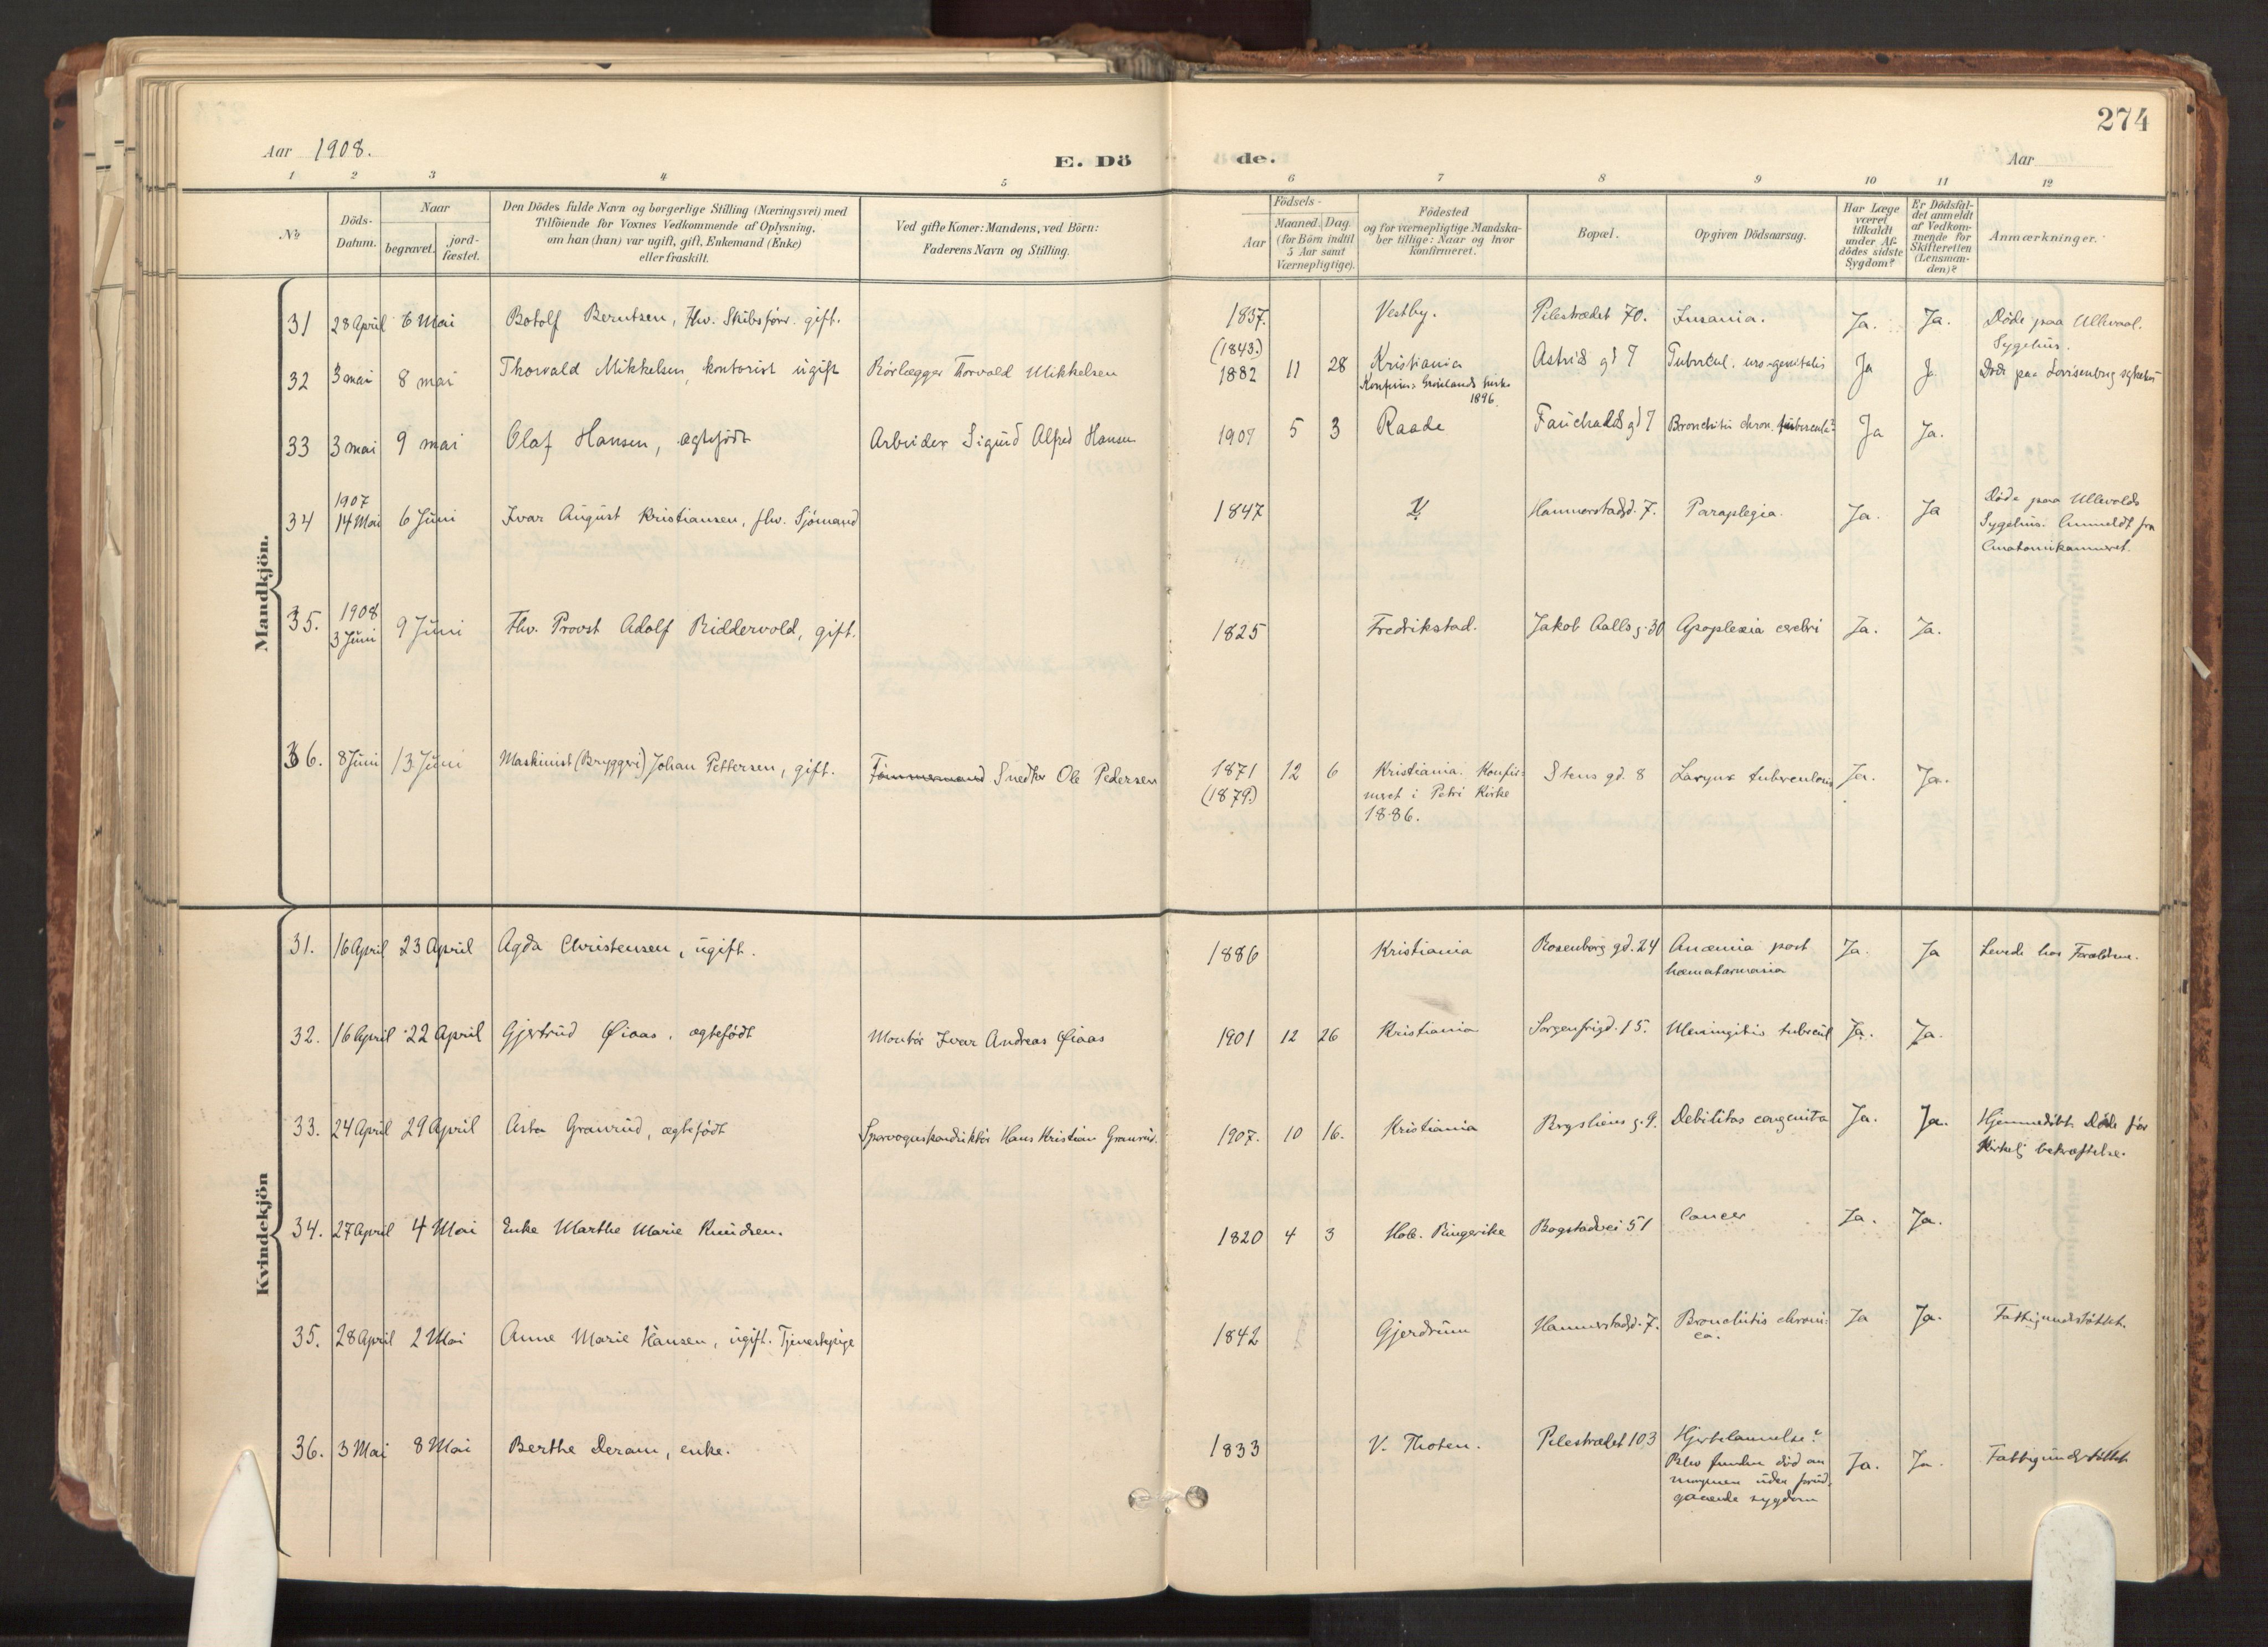 274
Aar 1908.
E. Dö de.
Aar
1 2 3 4 5 6 7 8 9 10 11 12
No
Döds-Datum.
Naar
begravet.
jord-fæstet.
Den Dödes fulde Navn og borgerlige Stilling (Næringsvei) med
Tilföiende for Voxnes Vedkommende af Oplysning,
om han (hun) var ugift, gift, Enkemand (Enke)
eller fraskilt.
Ved gifte Koner: Mandens, ved Börn:
Faderens Navn og Stilling.
Födsels-
Aar
Maaned. Dag.
(for Börn indtil
5 Aar samt
Værnepligtige).
Födested
og for værnepligtige Mandska-
ber tillige: Naar og hvor
konfirmeret.
Bopæl.
Opgiven Dödsaarsag.
Har Læge
været
tilkaldt
under Af-
dödes sidste
Sygdom?
Er Dödsfal-
det anmeldt
af Vedkom-
mende for
Skifteretten
(Lensman-
den)?
Anmærkninger.
Mandkjön.
31 28 April 6 Mai Botolf Berntsen, Fhv. Skibsförer. gift. 1837. (1843.) Vestby. Pilestrædet 70. Insania. Ja. Ja. Döde paa Ullevaal. Sygehus.
32 3 mai 8 mai Thorvald Mikkelsen, kontorist ugift Rörlægger Thorvald Mikkelsen 1882 11 28 Kristiania Astrids gd 7 Tubercul. uro-genitalis Ja J. Döde paa Lovisenberg sykehus
Konfirm. Grönlands kirke
1896.
33 3 mai 9 mai Olaf Hansen, ægtefödt Arbeider Sigurd Alfred Hansen 1907 5 3 Raade Fauchalds gd 7 Bronchitis chron. tubercul? Ja Ja.
34 1907 14 Mai 6 Juni Ivar August Kristiansen, fhv. Sjömand 1847 Hammerstadgd. 7. Paraplegia. Ja. Ja Döde paa Ullevolds
Sygehus. Anmeldt fra
Anatomikammeret.
35. 1908 3 Juni 9 Juni Fhv. Provst Adolf Riddervold, gift. 1825 Fredrikstad. Jakob Aalls g. 30 Apoplexia cerebri Ja. Ja.
36. 8 Juni 13 Juni Maskinist (Bryggeri) Johan Pettersen, gift. Tömmermand Snedker Ole Pedersen 1871 (1879.) 12 6 Kristiania. Konfir- Stens gd. 8 Larynx tuberculosis Ja. Ja.
meret i Petri Kirke
1886.
Kvindekjön
31. 16 April 23 April Agda Christensen, ugift. 1886 Kristiania Rosenborg gd. 24 Anæmia post Ja. Ja Levede hos Forældrene.
32. 16 April 22 April Gjertrud Øiaas, ægtefödt Montör Ivar Andreas Øiaas 1901 12 26 Kristiania Sorgenfrigd. 15. Meningitis tubercul Ja. Ja.
33. 24 April 29 April Asta Granrud, ægtefödt Sporvognskonduktör Hans Kristian Granrud. 1907. 10 16. Kristiania Bergsliens g. 9. Debilitas congenita Ja. Ja. Hjemmedöbt. Döde för
Kirkelig bekræftelse.
34. 27 April 4 Mai Enke Marthe Marie Knudsen. 1820 4 3 Hole. Ringerike Bogstadvei 51 Cancer Ja. Ja.
35. 28 April 2 Mai Anne Marie Hansen, ugift. Tjenestepige 1842 Gjerdrum Hammerstadgd. 7. Bronchitis chroni- Ja Ja. Fattigunderstöttet.
ca.
36. 3 Mai 8 Mai Berthe Deram, enke. 1833 V. Thoten. Pilestrædet 103 Hjertelammelse? Ja. Ja. Fattigunderstöttet
Blev funden död om
morgenen uden forud-
gaaende sygdom